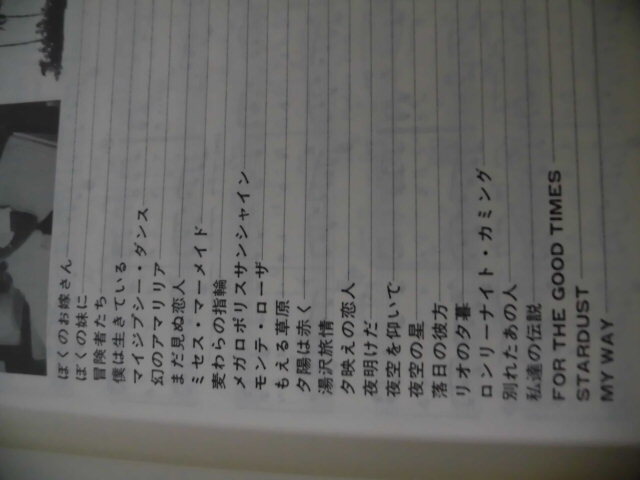 ぼくのお嫁さん
ぼくの妹に
冒険者たち
僕は生きている
マイジプシー・ダンス
幻のアマリリア
まだ見ぬ恋人
ミセス・マーメイド
麦わらの指輪
メガロポリスサンシャイン
モンテ・ローザ
もえる草原
夕陽は赤く
湯沢旅情
夕映えの恋人
夜明けだ
夜空を仰いで
夜空の星
落日の彼方
リオの夕暮
ロンリーナイト・カミング
別れたあの人
私達の伝説
FOR THE GOOD TIMES
STARDUST
MY WAY